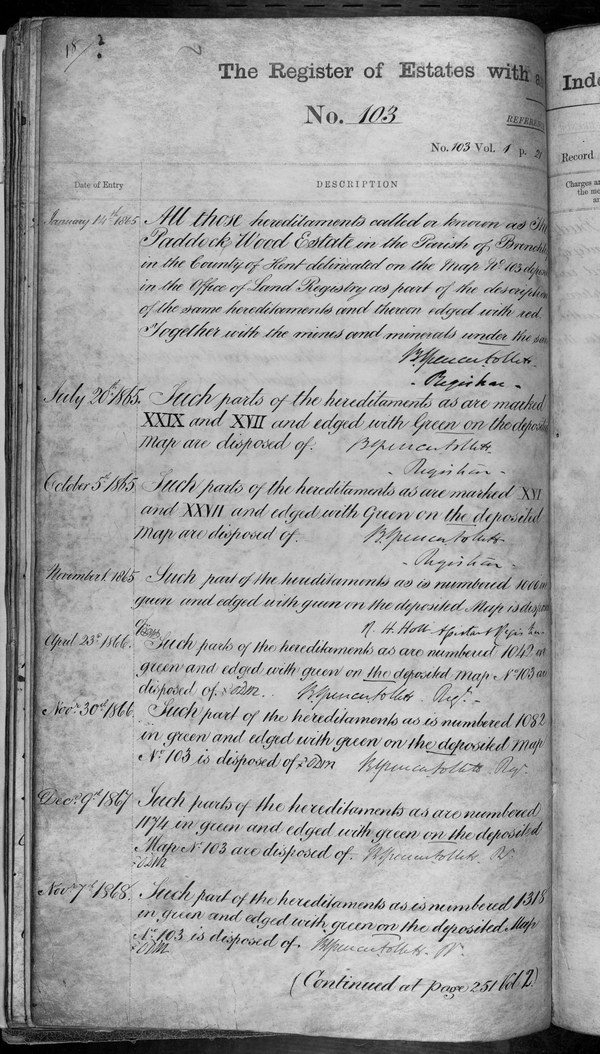 18
The Register of Estates with a
No. 103
REFEREN
No. 103 Vol. 1 p. 21
Date of Entry
DESCRIPTION
January 14th 1865. All those hereditaments called or known as The
Paddock Wood Estate in the Parish of Brenchle
in the County of Kent delineated on the Map No. 103 depos
in the Office of Land Registry as part of the descriptio
of the same hereditaments and thereon edged with red.
Together with the mines and minerals under the sa
B Spencer Follett.
- Registrar -
July 20th 1865. Such parts of the hereditaments as are marked
XXIX and XVII and edged with Green on the deposite
Map are disposed of. B Spencer Follett.
- Registrar -
October 5th 1865. Such parts of the hereditaments as are marked XVI
and XXVII and edged with Green on the deposited
Map are disposed of. B. Spencer Follett.
- Registrar -
November 1. 1865 Such part of the hereditaments as is numbered 1006 in
green and edged with green on the deposited Map is dispose
of R. H. Holt Assistant Registrar
April 23rd 1866. Such parts of the hereditaments as are numbered 1042 in
green and edged with green on the deposited Map No 103 are
disposed of. B Spencer Follett Regr. -
Novr. 30th 1866. Such part of the hereditaments as is numbered 1082
in green and edged with green on the deposited Map
No. 103 is disposed of B Spencer Follett Regr.
Decr. 9th 1867 Such parts of the hereditaments as are numbered
1174 in green and edged with green on the deposited
Map No. 103 are disposed of. B Spencer Follett. Rr
Novr. 7th 1868. Such part of the hereditaments as is numbered 1318
in green and edged with green on the deposited Map
No. 103 is disposed of. B Spencer Follett. Rr.
(Continued at page 251 Vol 2)
Inde
Record
Charges a
the mo
an